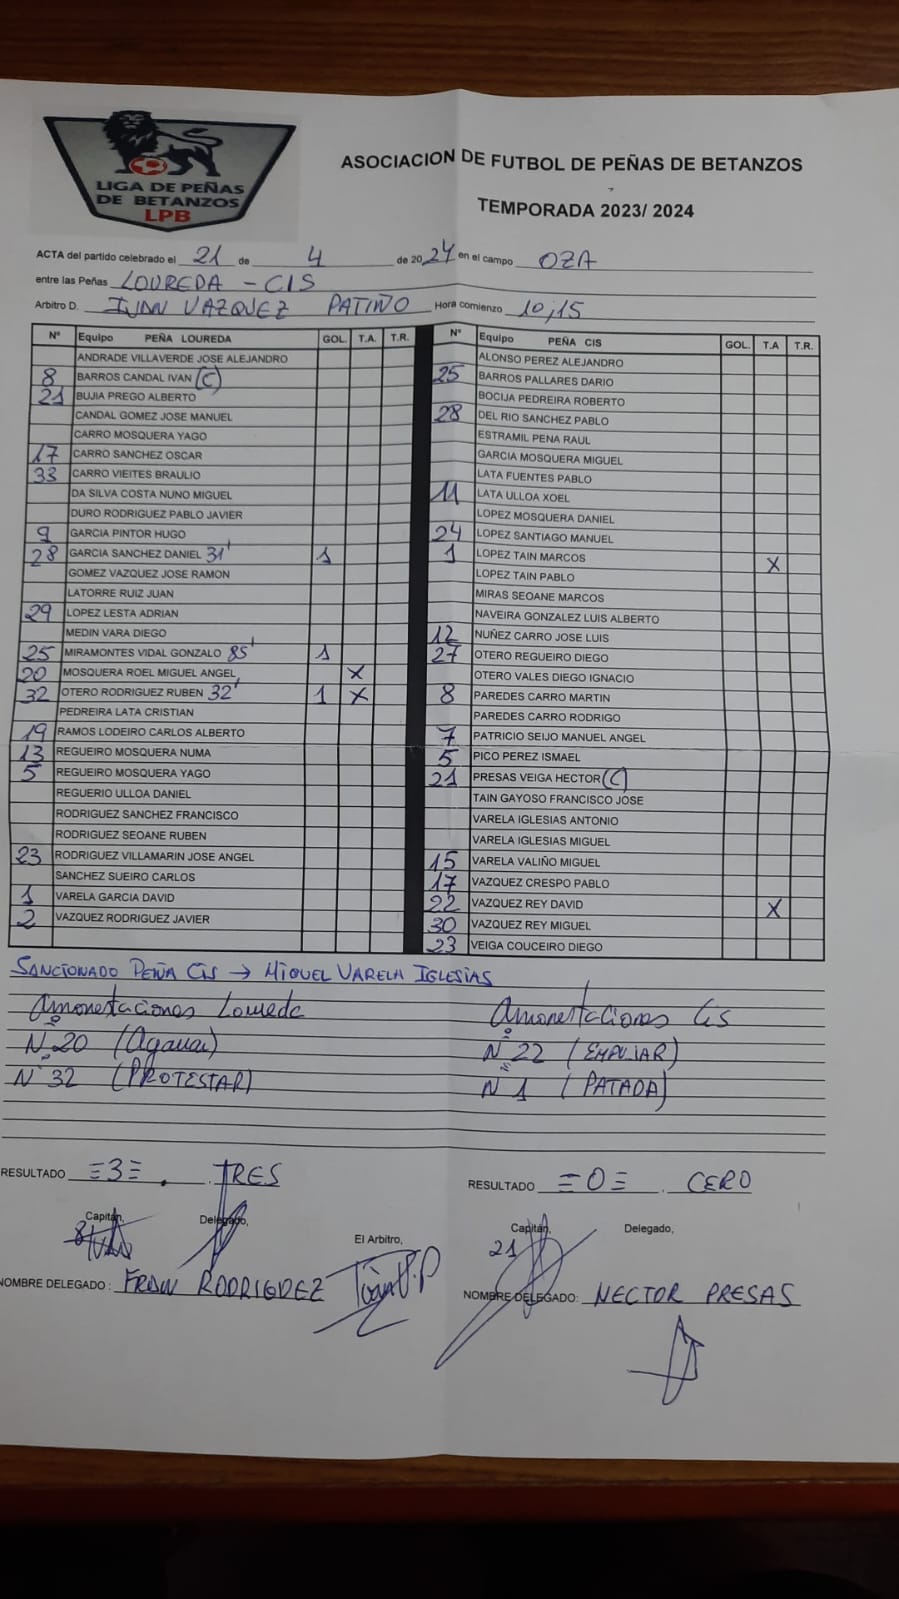 LIGA DE PEÑAS
DE BETANZOS
LPB
ASOCIACION DE FUTBOL DE PEÑAS DE BETANZOS
TEMPORADA 2023/ 2024
ACTA del partido celebrado el 21 de 4 de 2024 en el campo OZA
entre las Peñas LOUREDA - CIS
Arbitro D. IVAN VAZQUEZ PATIÑO Hora comienzo 10,15
Nº Equipo PEÑA LOUREDA GOL. T.A. T.R.
ANDRADE VILLAVERDE JOSE ALEJANDRO
8 BARROS CANDAL IVAN (C)
21 BUJIA PREGO ALBERTO
CANDAL GOMEZ JOSE MANUEL
CARRO MOSQUERA YAGO
17 CARRO SANCHEZ OSCAR
33 CARRO VIEITES BRAULIO
DA SILVA COSTA NUNO MIGUEL
DURO RODRIGUEZ PABLO JAVIER
9 GARCIA PINTOR HUGO
28 GARCIA SANCHEZ DANIEL 31' 1
GOMEZ VAZQUEZ JOSE RAMON
LATORRE RUIZ JUAN
29 LOPEZ LESTA ADRIAN
MEDIN VARA DIEGO
25 MIRAMONTES VIDAL GONZALO 85' 1
20 MOSQUERA ROEL MIGUEL ANGEL X
32 OTERO RODRIGUEZ RUBEN 32' 1 X
PEDREIRA LATA CRISTIAN
19 RAMOS LODEIRO CARLOS ALBERTO
13 REGUEIRO MOSQUERA NUMA
5 REGUEIRO MOSQUERA YAGO
REGUERIO ULLOA DANIEL
RODRIGUEZ SANCHEZ FRANCISCO
RODRIGUEZ SEOANE RUBEN
23 RODRIGUEZ VILLAMARIN JOSE ANGEL
SANCHEZ SUEIRO CARLOS
1 VARELA GARCIA DAVID
2 VAZQUEZ RODRIGUEZ JAVIER
Nº Equipo PEÑA CIS GOL. T.A T.R.
ALONSO PEREZ ALEJANDRO
25 BARROS PALLARES DARIO
BOCIJA PEDREIRA ROBERTO
28 DEL RIO SANCHEZ PABLO
ESTRAMIL PENA RAUL
GARCIA MOSQUERA MIGUEL
LATA FUENTES PABLO
11 LATA ULLOA XOEL
LOPEZ MOSQUERA DANIEL
24 LOPEZ SANTIAGO MANUEL
1 LOPEZ TAIN MARCOS X
LOPEZ TAIN PABLO
MIRAS SEOANE MARCOS
NAVEIRA GONZALEZ LUIS ALBERTO
12 NUÑEZ CARRO JOSE LUIS
27 OTERO REGUEIRO DIEGO
OTERO VALES DIEGO IGNACIO
8 PAREDES CARRO MARTIN
PAREDES CARRO RODRIGO
7 PATRICIO SEIJO MANUEL ANGEL
5 PICO PEREZ ISMAEL
21 PRESAS VEIGA HECTOR (C)
TAIN GAYOSO FRANCISCO JOSE
VARELA IGLESIAS ANTONIO
VARELA IGLESIAS MIGUEL
15 VARELA VALIÑO MIGUEL
17 VAZQUEZ CRESPO PABLO
22 VAZQUEZ REY DAVID X
30 VAZQUEZ REY MIGUEL
23 VEIGA COUCEIRO DIEGO
SANCIONADO PEÑA CIS → MIGUEL VARELA IGLESIAS
Amonestaciones Loureda
Nº 20 (Agarrar)
Nº 32 (PROTESTAR)
Amonestaciones Cis
Nº 22 (EMPUJAR)
Nº 1 (PATADA)
RESULTADO =3= . TRES
RESULTADO =0= . CERO
Capitán, Delegado,
8
El Arbitro,
Capitán, Delegado,
21
NOMBRE DELEGADO: FRAN RODRIGUEZ
NOMBRE DELEGADO: HECTOR PRESAS